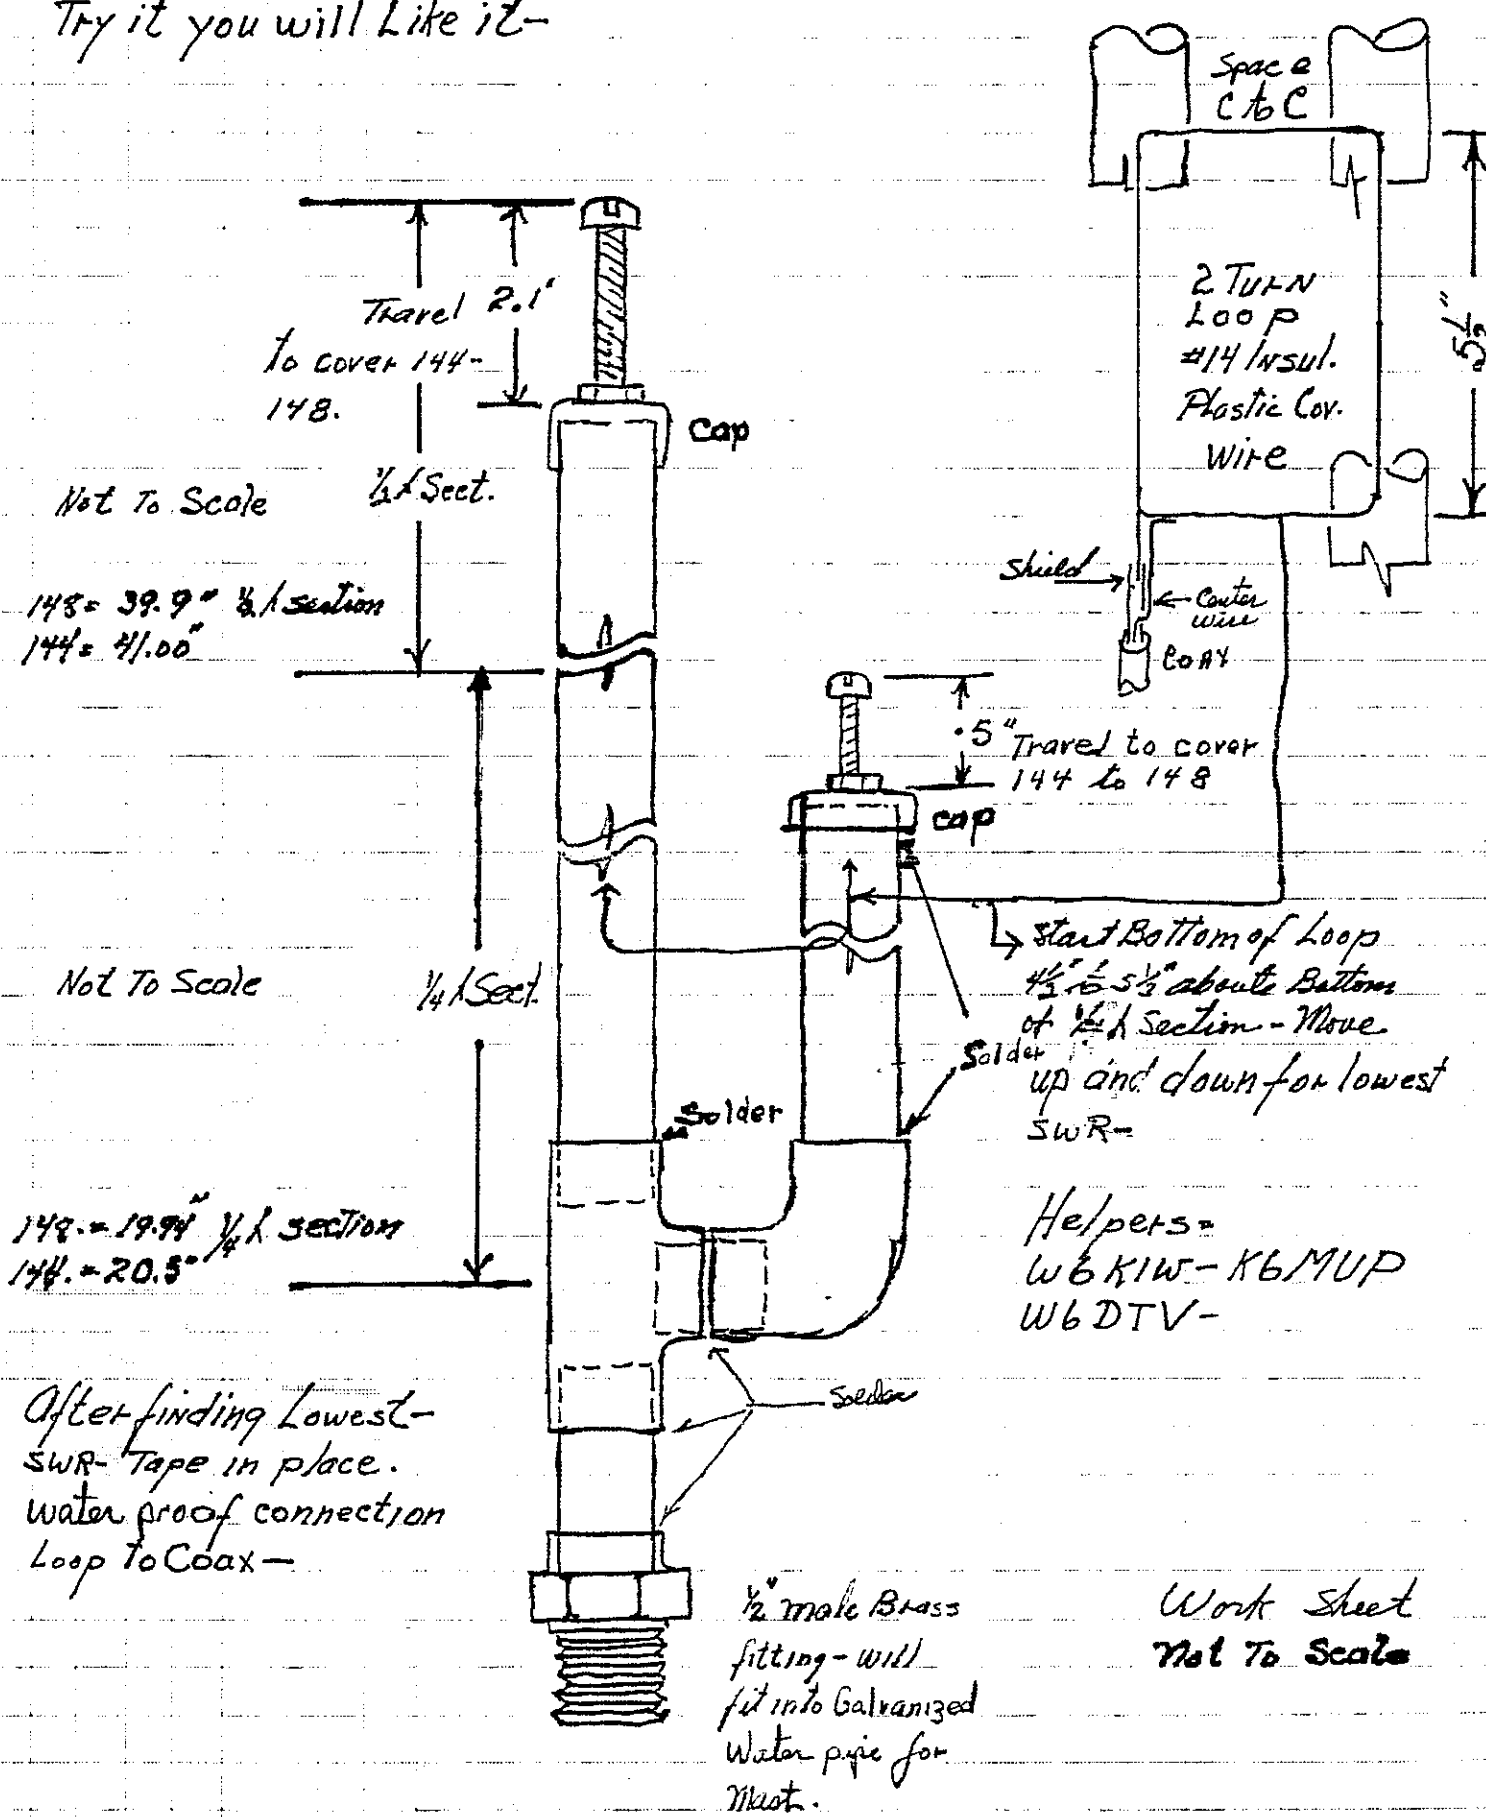 Try it you will Like it-
Space
C to C
2 Turn
Loop
#14 Insul.
Plastic Cov.
Wire
5½"
Shield
Center
wire
Coax
Travel 2.1"
to cover 144-
148.
Cap
Not To Scale
½ λ Sect.
148= 39.9" ½ λ section
144= 41.00"
.5" Travel to cover
144 to 148
cap
Start Bottom of Loop
4½" to 5½" aboute Bottom
of ¼ λ Section - Move
up and down for lowest
SWR-
Not To Scale
¼ λ Sect.
Solder
Solder
148.= 19.94" ¼ λ section
144.= 20.5"
Helpers=
W6KIW- K6MUP
W6DTV-
After finding Lowest-
SWR- Tape in place.
Water proof connection
Loop To Coax-
Solder
½" male Brass
fitting - will
fit into Galvanized
Water pipe for
Mast.
Work Sheet
Not To Scale